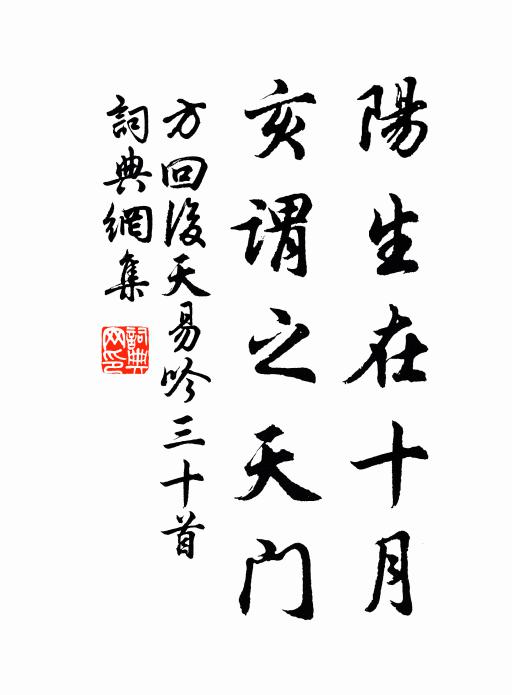 陽生在十月
亥謂之天門
方回後天易吟三十首
詞典網集
詞典網印